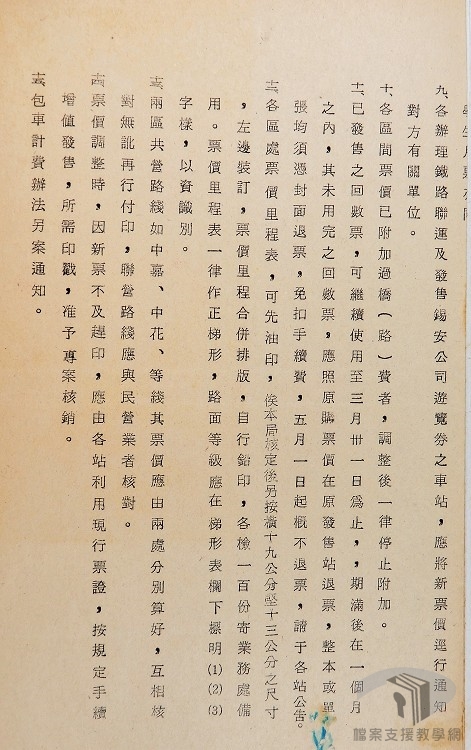 九、各辦理鐵路聯運及發售錫安公司遊覽劵之車站，應將新票價逕行通知
對方有關單位。
十、各區間票價已附加過橋（路）費者，調整後一律停止附加。
十一、已發售之回數票，可繼續使用至三月卅一日為止，期滿後在一個月
之內，其未用完之回數票，應照原購票價在原發售站退票，整本或單
張均須憑封面退票，免扣手續費，五月一日起概不退票，請于各站公告。
十二、各區處票價里程表，可先油印，俟本局核定後另按橫十九公分豎十三公分之尺寸
，左邊裝訂，票價里程合併排版，自行鉛印，各檢一百份寄業務處備
用。票價里程表一律作正梯形，路面等級應在梯形表欄下標明(1)(2)(3)
字樣，以資識別。
十三、兩區共營路綫如中嘉、中花、等綫其票價應由兩處分別算好，互相核
對無訛再行付印，聯營路綫應與民營業者核對。
十四、票價調整時，因新票不及趕印，應由各站利用現行票證，按規定手續
增值發售，所需印戳，准予專案核銷。
十五、包車計費辦法另案通知。
檔案支援教學網